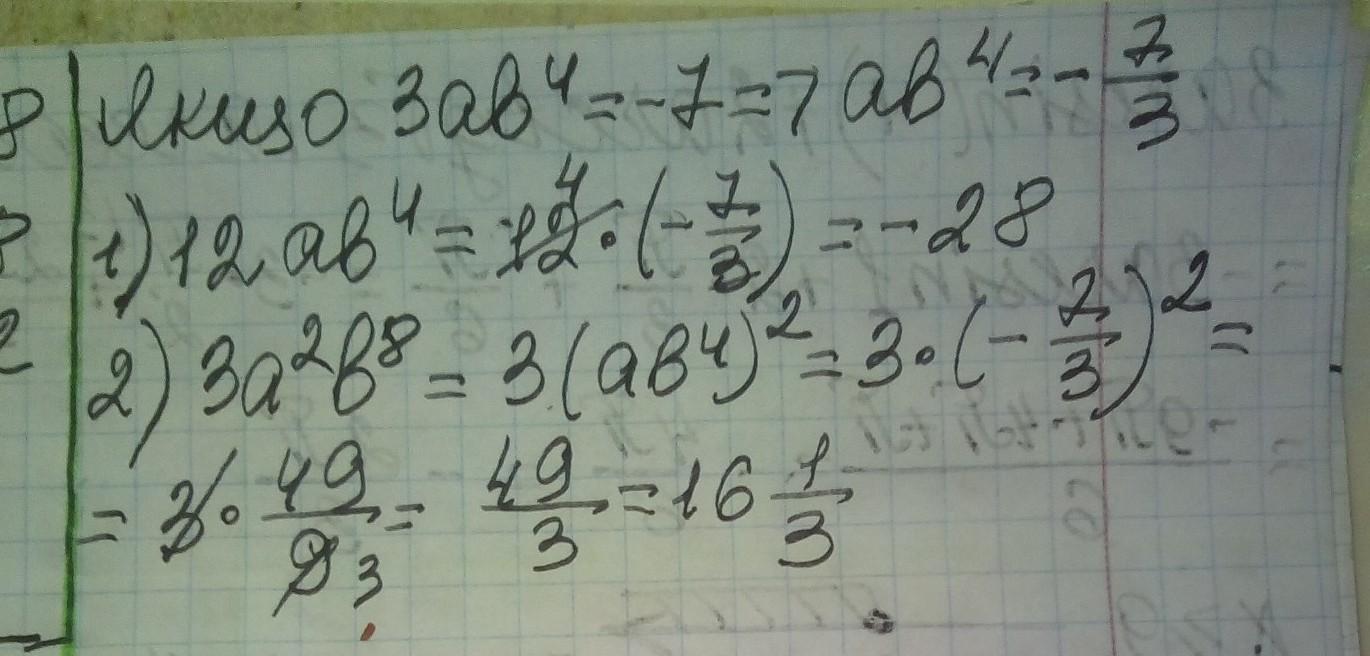 Якщо 3ab⁴ = -7 => ab⁴ = -7/3
1) 12ab⁴ = 12 4 · (-7/3) = -28
2) 3a²b⁸ = 3(ab⁴)² = 3 · (-7/3)² =
= 3 · 49/9 3 = 49/3 = 16 1/3